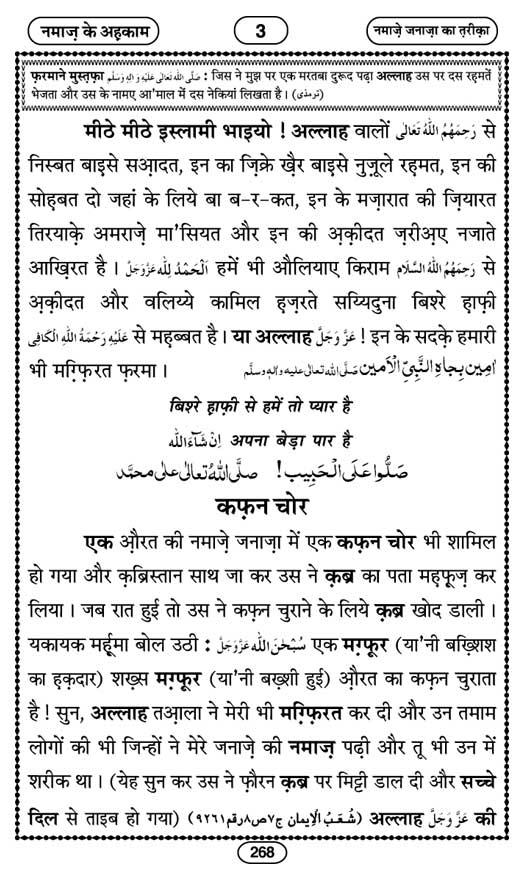 नमाज़ के अह़काम
3
नमाज़े जनाज़ा का त़रीक़ा
फ़रमाने मुस्तफ़ा صَلَّى اللهُ تَعَالٰى عَلَيْهِ وَاٰلِهٖ وَسَلَّم : जिस ने मुझ पर एक मरतबा दुरूद पढ़ा अल्लाह उस पर दस रह़मतें
भेजता और उस के नामए आ'माल में दस नेकियां लिखता है । (ترمذی)
मीठे मीठे इस्लामी भाइयो ! अल्लाह वालों رَحِمَهُمُ اللهُ تَعَالٰى से
निस्बत बाइसे सआ़दत, इन का ज़िक्रे ख़ैर बाइसे नुज़ूले रह़मत, इन की
सोह़बत दो जहां के लिये बा ब-र-कत, इन के मज़ारात की ज़ियारत
तिरयाके़ अमराजे़ मा'सियत और इन की अ़क़ीदत ज़रीअ़ए नजाते
आख़िरत है । اَلْحَمْدُ لِلّٰه عَزَّوَجَلَّ हमें भी औलियाए किराम رَحِمَهُمُ اللهُ السَّلَام से
अ़क़ीदत और वलिय्ये कामिल ह़ज़रते सय्यिदुना बिश्रे ह़ाफ़ी
عَلَيْهِ رَحْمَةُ اللهِ الْكَافِى से मह़ब्बत है । या अल्लाह عَزَّ وَجَلَّ ! इन के सदके़ हमारी
भी मग़्फ़िरत फ़रमा । اٰمِين بِجَاهِ النَّبِىِّ الْاَمين صَلَّى الله تعالٰى عليه واٰلهٖ وسلَّم
बिश्रे ह़ाफ़ी से हमें तो प्यार है
اِنْ شَآءَ الله अपना बेड़ा पार है
صَلُّوا عَلَى الْحَبِيب ! صلَّى اللهُ تعالٰى علٰى محمَّد
कफ़न चोर
एक औ़रत की नमाज़े जनाज़ा में एक कफ़न चोर भी शामिल
हो गया और क़ब्रिस्तान साथ जा कर उस ने क़ब्र का पता मह़फ़ूज़ कर
लिया । जब रात हुई तो उस ने कफ़न चुराने के लिये क़ब्र खोद डाली ।
यकायक मर्हू़मा बोल उठी : سُبْحٰنَ الله عَزَّوَجَلَّ एक मग़्फ़ूर (या'नी बख़्शिश
का ह़क़दार) शख़्स मग़्फ़ूर (या'नी बख़्शी हुई) औ़रत का कफ़न चुराता
है ! सुन, अल्लाह तआ़ला ने मेरी भी मग़्फ़िरत कर दी और उन तमाम
लोगों की भी जिन्हों ने मेरे जनाज़े की नमाज़ पढ़ी और तू भी उन में
शरीक था । (येह सुन कर उस ने फ़ौरन क़ब्र पर मिट्टी डाल दी और सच्चे
दिल से ताइब हो गया) (شُعَبُ الْاِيمان ج٧ص٨رقم٩٢٦١) अल्लाह عَزَّ وَجَلَّ की
268